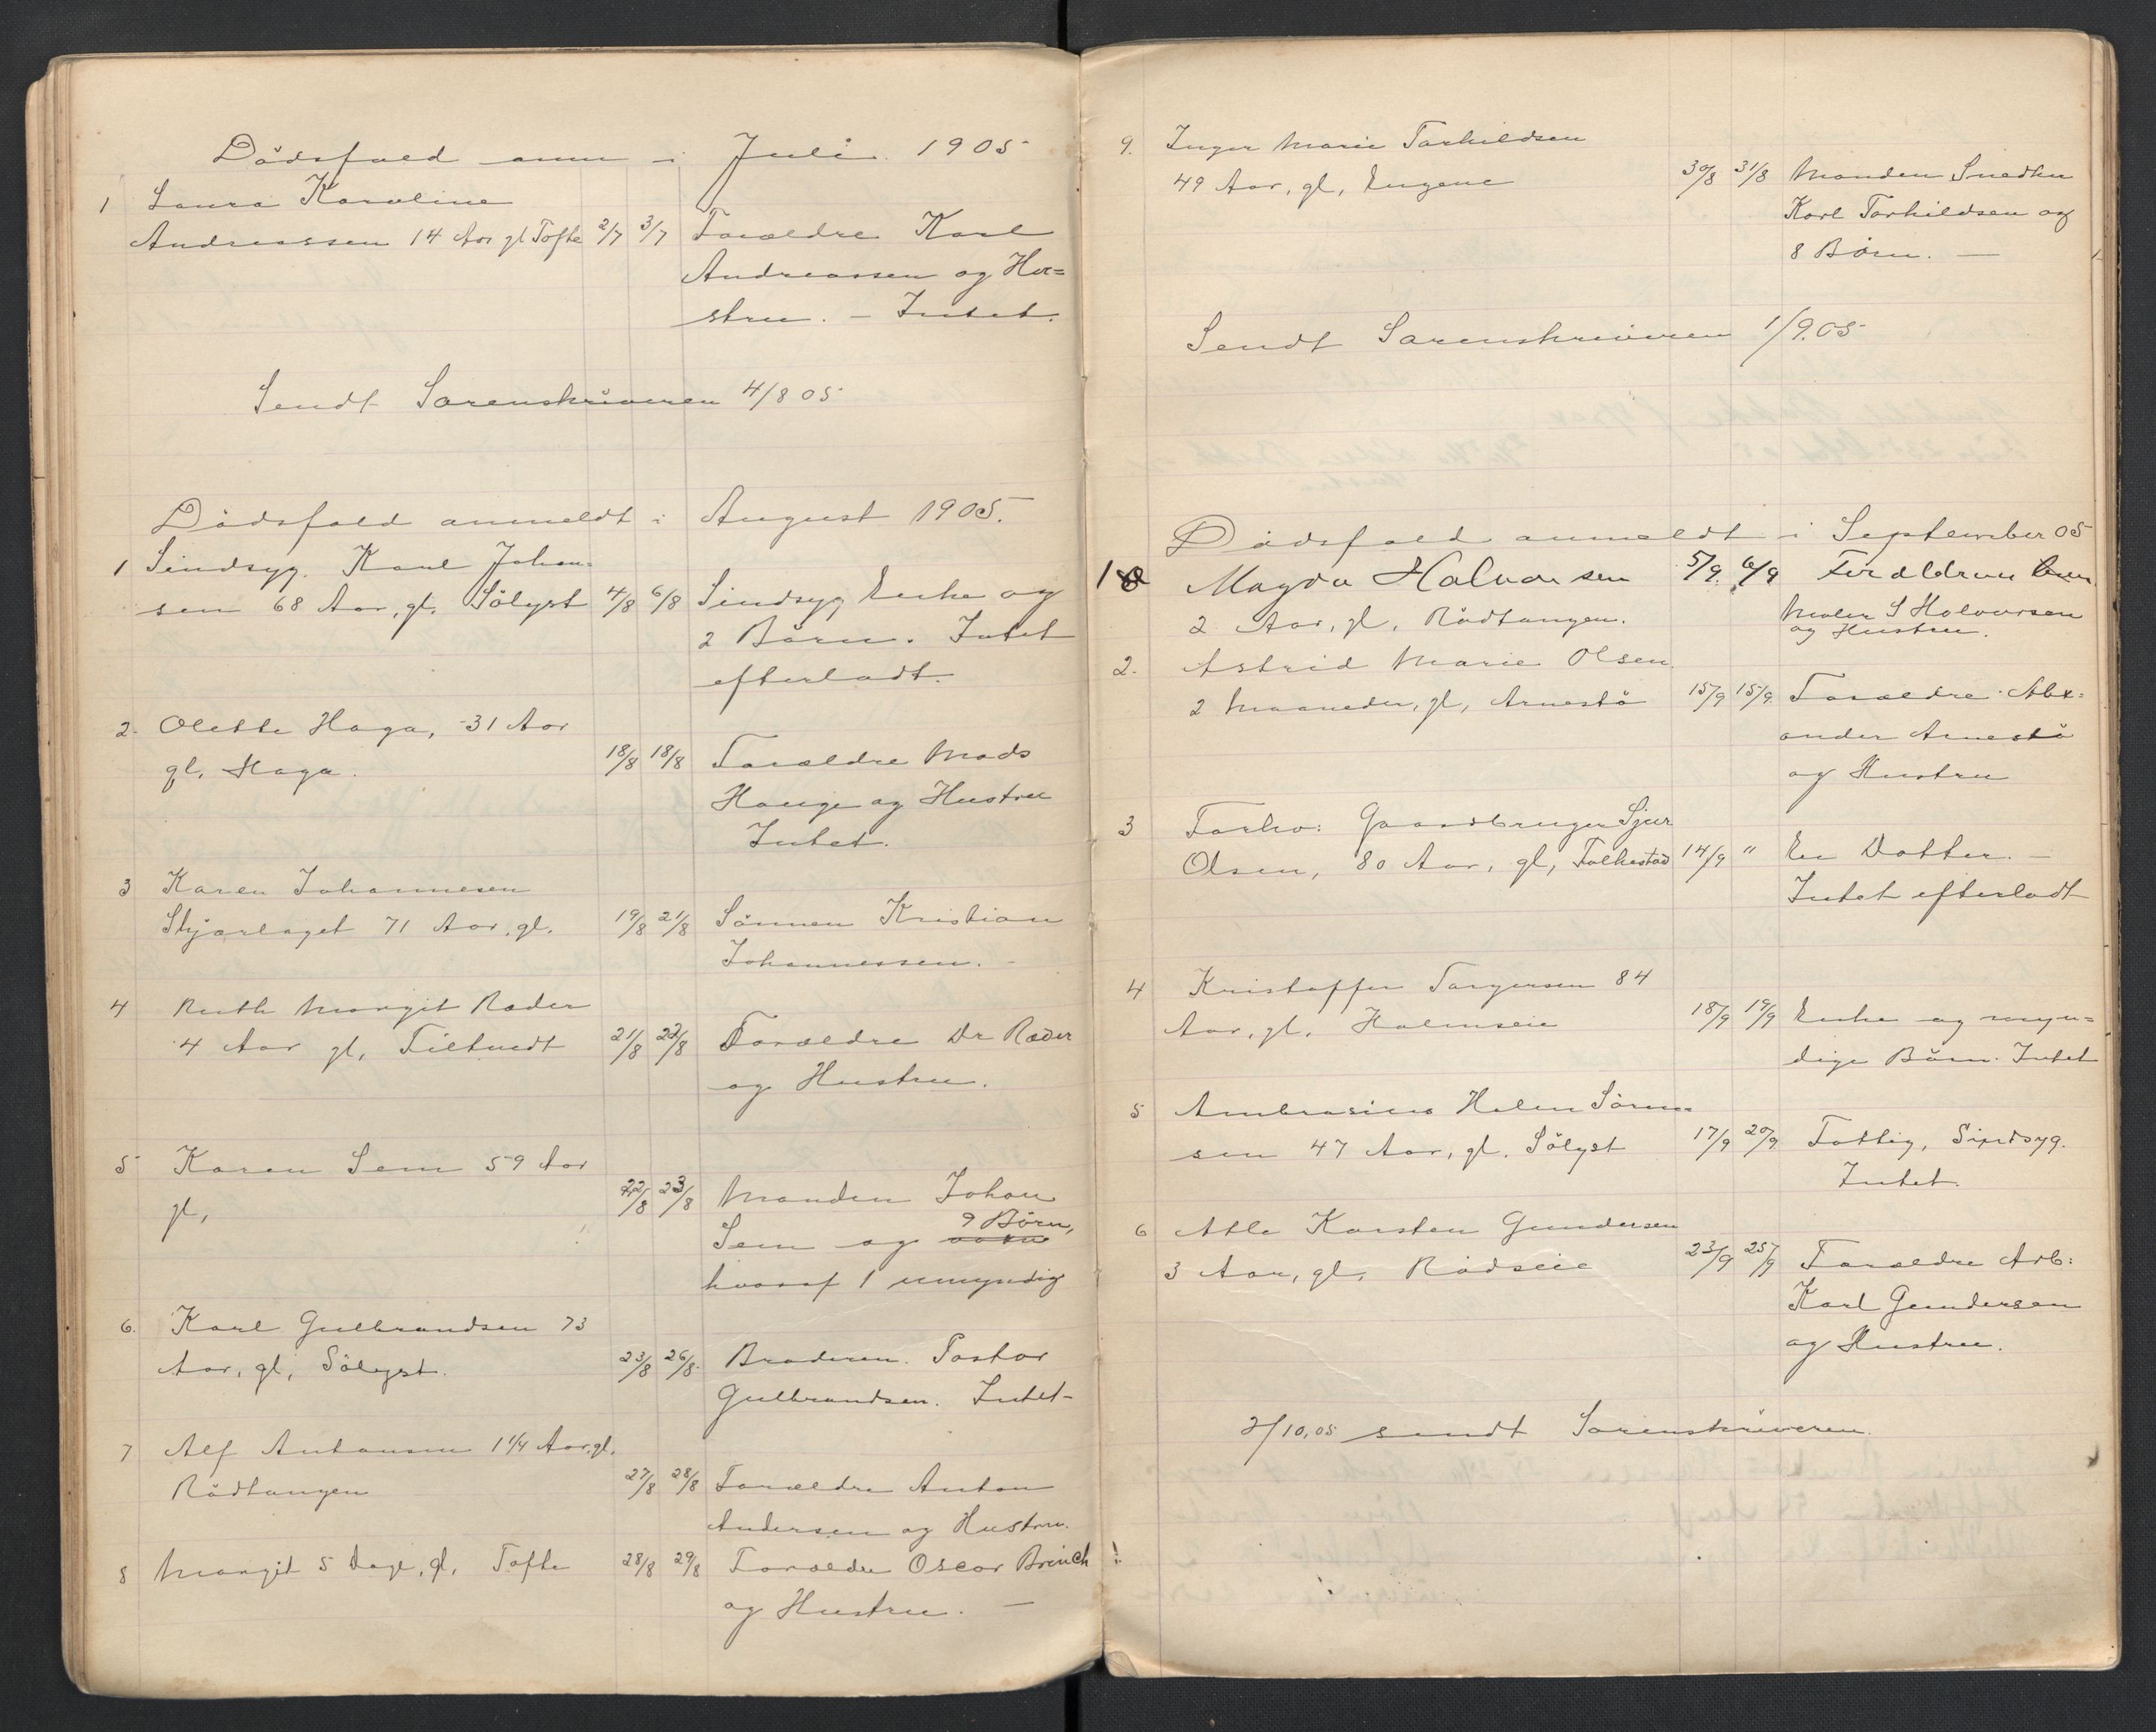 Dödsfald anm i Juli 1905
1 Laura Karoline
Andreassen 14 Aar gl Tofte 2/7 3/7 Forældre Karl
Andreassen og Hu=
stru. – Intet.
Sendt Sorenskriveren 4/8 05
Dödsfald anmeldt i August 1905.
1 Sindsyg. Karl Johan=
sen 68 Aar, gl. Sölyst 4/8 6/8 Sindsyg Enke og
2 Börn. Intet
efterladt.
2. Olette Haga, 31 Aar
gl. Haga. 18/8 18/8 Forældre Mads
Hauge og Hustru
Intet.
3 Karen Johannesen
Skjærlaget 71 Aar, gl. 19/8 21/8 Sönnen Kristian
Johannessen. –
4 Ruth Margit Rader
4 Aar gl, Filtvedt 21/8 22/8 Forældre Dr Ræder
og Hustru.
5 Karen Sem 59 Aar
gl, 22/8 23/8 Manden Johan
9 Börn,
Sem og voxne
hvoraf 1 umyndig
6. Karl Gulbrandsen 73
Aar, gl, Sölyst. 23/8 26/8. Broderen. Pastor
Gulbrandsen. Intet-
7 Alf Antonsen 1 1/4 Aar, gl.
Rödtangen 27/8 28/8 Forældre Anton
Andersen og Hustru.
8 Margit 5 Dage, gl. Tofte 28/8 29/8 Forældre Oscar Brinch
og Hustru. –
9. Inger Marie Torkildsen
49 Aar, gl, Engene 30/8 31/8 Manden Snedker
Karl Torkildsen og
8 Börn. –
Sendt Sorenskriveren 1/9.05
Dödsfald anmeldt i September 05
1 Magda Halvorsen 5/9. 6/9 Forældrene
2 Aar, gl, Rödtangen. Maler S Halvorsen
og Hustru.
2. Astrid Marie Olsen
2 Maaneder, gl, Arnestö 15/9 15/9. Forældre Alex=
ander Arnestö
og Hustru
3 Forhv: Gaardbruger Sjur
Olsen, 80 Aar, gl, Folkestad 14/9 " En Datter. –
Intet efterladt
4 Kristoffer Torgersen 84
Aar, gl. Holmseie 18/9 19/9 Enke og myn=
dige Börn. Intet
5 Ambrosius Helen Sören=
sen 47 Aar, gl. Sölyst 17/9 20/9 Fattig, Sindsyg.
Intet.
6 Atle Karsten Gundersen
3 Aar, gl, Rödseie 23/9 25/9 Forældre Arb:
Karl Gundersen
og Hustru.
2/10.05 sendt Sorenskriveren.